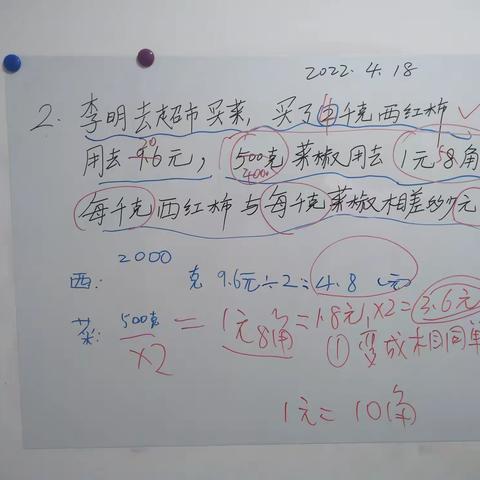 2022.4.18
2. 李明去超市买菜,买了千克西红柿
用去9.6元,500克菜椒用去1元8角
400
每千克西红柿与每千克菜椒相差多少元
2000
西: 克 9.6元÷2=4.8(元)
菜: 500克 = 1元8角=1.8元×2=3.6元
×2 ①变成相同单
1元=10角